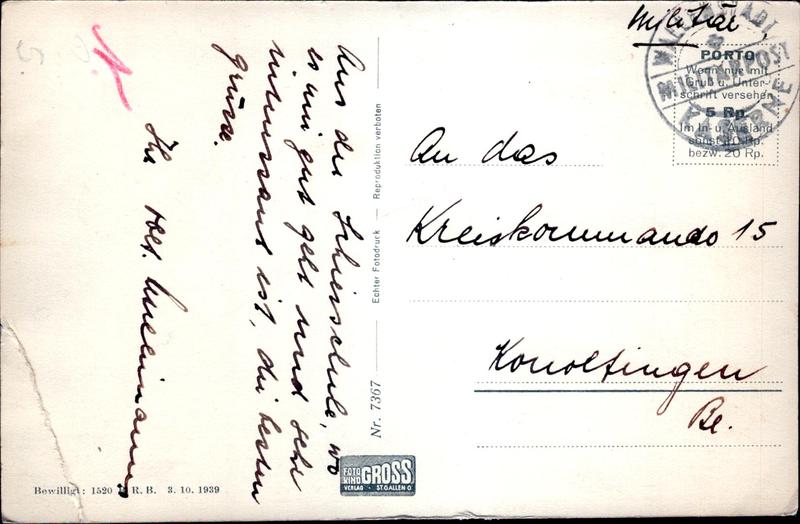 Militär
WALENSTADT
MILITÄRPOST
KASERNE
PORTO
Wenn nur mit
Gruß u. Unter-
schrift versehen
5 Rp.
Im In- u. Ausland
sonst 10 Rp.
bezw. 20 Rp.
An das
Kreiskommando 15
Konolfingen
Be.
Aus der Schiessschule, wo
es mir gut geht und sehr
interessant ist, die besten
grüsse.
Ihr
Echter Fotodruck — Reproduktion verboten
Nr. 7367
FOTO KINO GROSS
VERLAG · ST. GALLEN O
Bewilligt: 1520 R. B. 3. 10. 1939